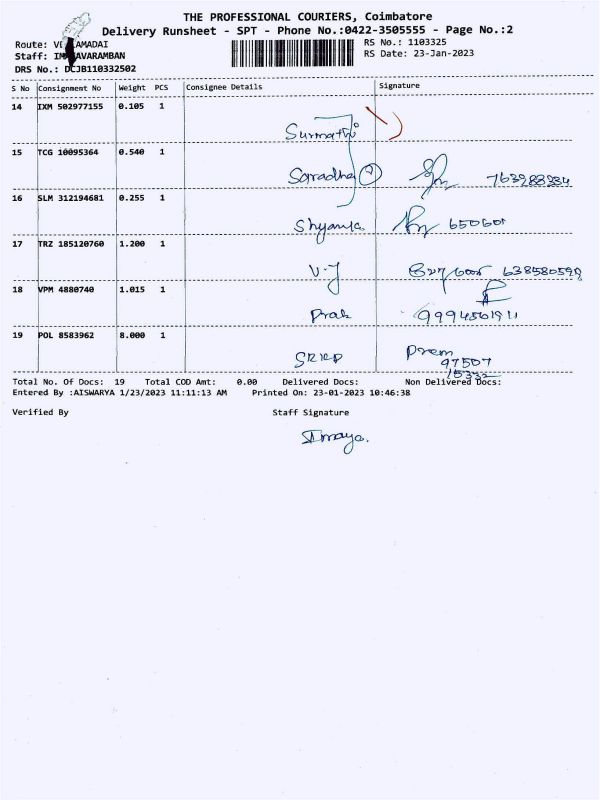 THE PROFESSIONAL COURIERS, Coimbatore
Delivery Runsheet - SPT - Phone No.:0422-3505555 - Page No.:2
Route: AMADAI
RS No.: 1103325
Staff: AVARAMBAN
RS Date: 23-Jan-2023
DRS No.: DCJB110332502
S No Consignment No Weight PCS Consignee Details Signature
14 IXM 502977155 0.105 1
Sumathi
15 TCG 10095364 0.540 1
Saradha
16 SLM 312194681 0.255 1
Shyamla 650601
17 TRZ 185120760 1.200 1
V.J 638580598
18 VPM 4880740 1.015 1
Prak 9994501911
19 POL 8583962 8.000 1
SKKP Prem
97507
15332
Total No. Of Docs: 19 Total COD Amt: 0.00 Delivered Docs: Non Delivered Docs:
Entered By :AISWARYA 1/23/2023 11:11:13 AM Printed On: 23-01-2023 10:46:38
Verified By Staff Signature